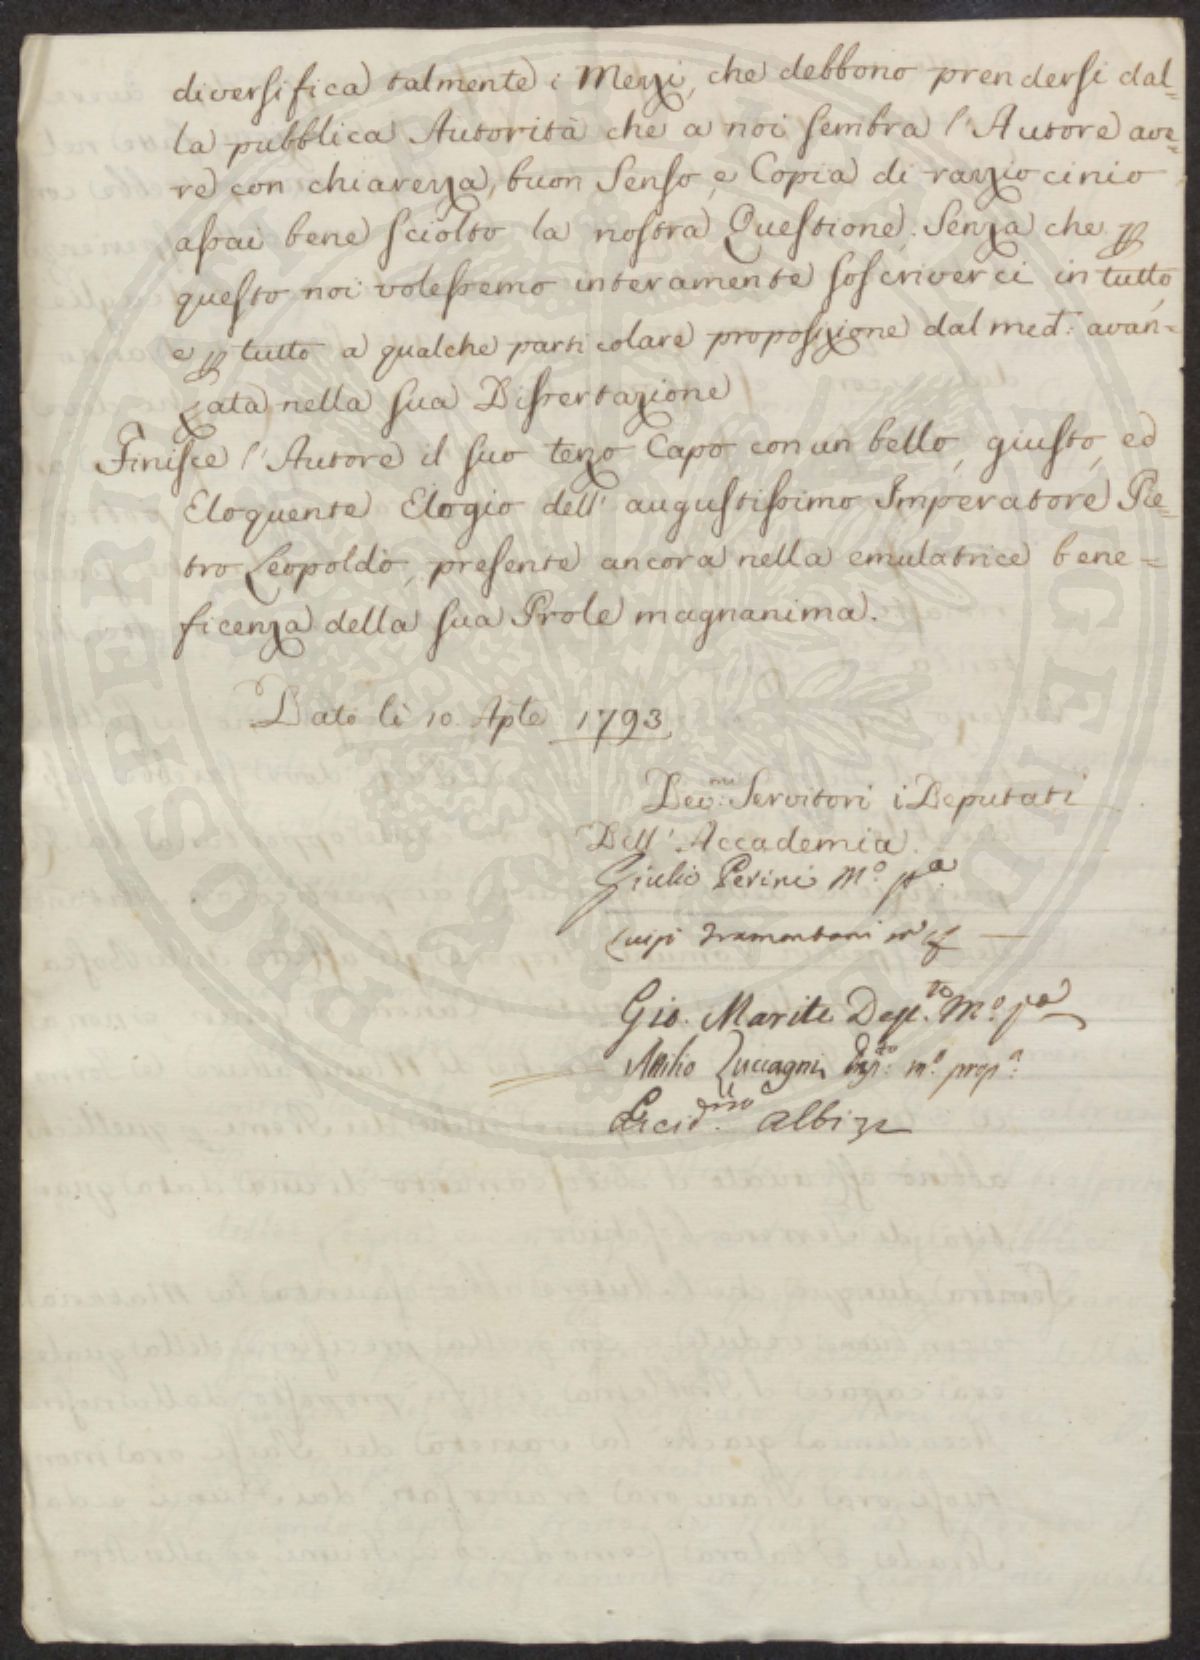 diversifica talmente i Mezzi, che debbono prendersi dal=
la pubblica Autorità che a noi sembra l'Autore ave=
re con chiarezza, buon Senso, e Copia di razziocinio
assai bene sciolto la nostra Questione. Senza che p
questo noi volessemo interamente soscriverci in tutto,
e p tutto a qualche particolare proposizione dal med: avan=
zata nella sua Dissertazione
Finisce l'Autore il suo terzo Capo con un bello, giusto, ed
Eloquente Elogio dell' augustissimo Imperatore Pie=
tro Leopoldo, presente ancora nella emulatrice bene=
ficenza della sua Prole magnanima.
Dato li 10. Aple 1793.
Dev:mi Servitori i Deputati
Dell' Accademia.
Giulio Perini Mo. pa
Luigi Tramontani
Gio. Mariti Dep.to Mo. pa
Attilio Zuccagni Dep:to mo. propa:
Albizi
PROSPERITATI PUBLICAE AUGENDAE